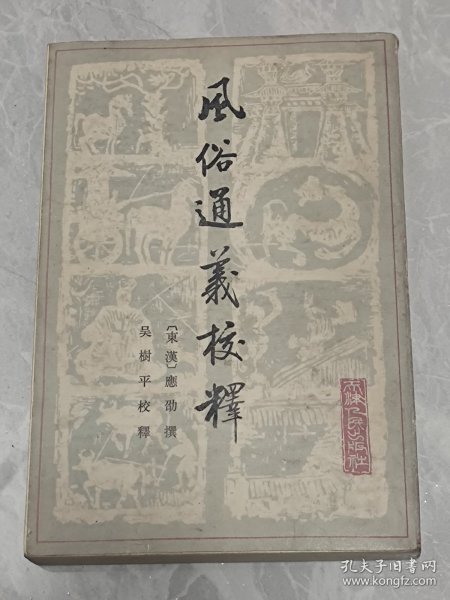 風俗通義校釋
〔東漢〕應劭撰
吳樹平校釋
天津人民出版社
孔夫子旧书网
www.kongfz.com